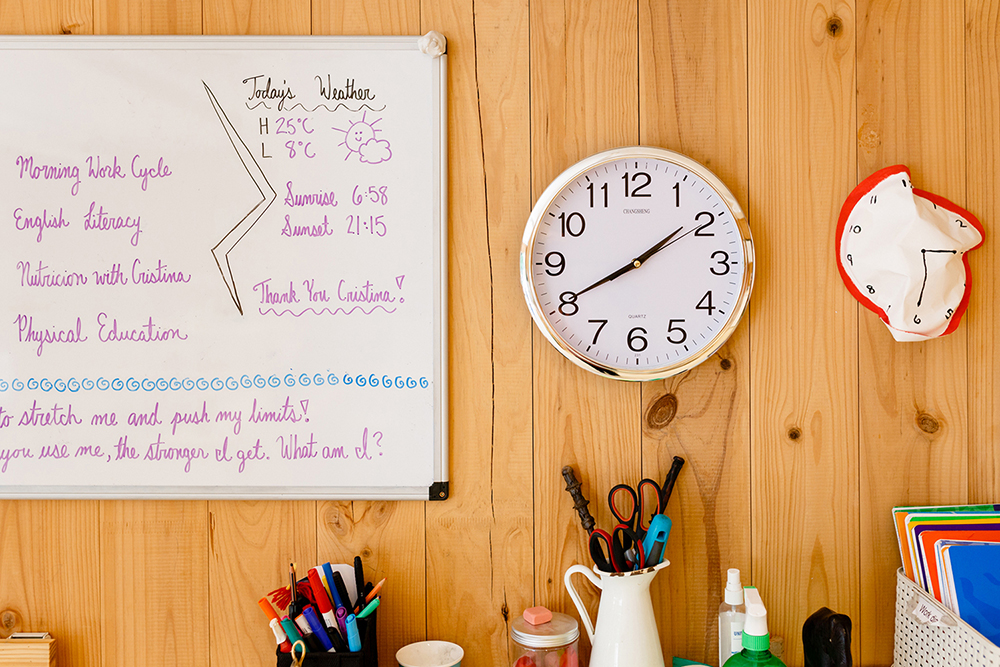 Today's Weather
H 25°C
L 8°C
Morning Work Cycle
Sunrise 6:58
English Literacy
Sunset 21:15
Nutricion with Cristina
Thank You Cristina!
Physical Education
to stretch me and push my limits!
you use me, the stronger I get. What am I?
12
1
2
3
4
5
6
7
8
9
10
11
CHANGSHENG
QUARTZ
11
12
10
2
9
3
8
5
6